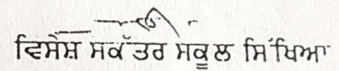 ਵਿਸੇਸ਼ ਸਕੱਤਰ ਸਕੂਲ ਸਿੱਖਿਆ